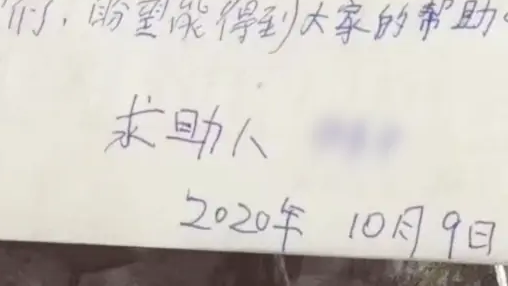 们，盼望能得到大家的帮助。
求助人
2020年 10月9日